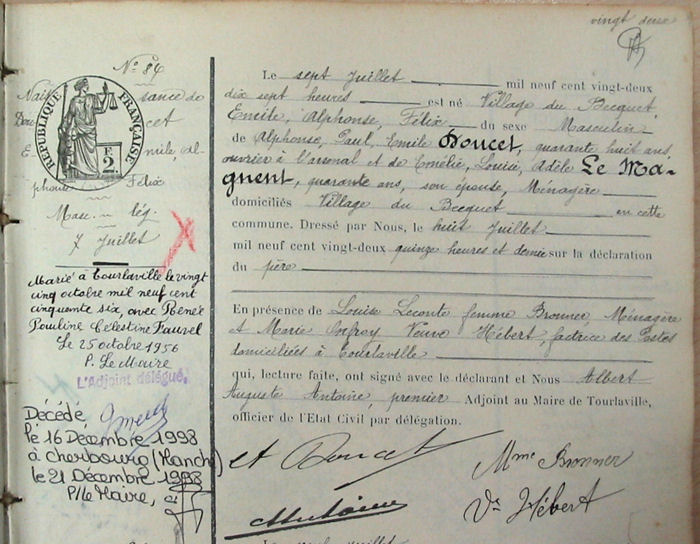 vingt deux
N° 84
Nais sance de
Dou cet
E mile, Al-
phonse Félix
Masc. lég.
7 Juillet
RÉPUBLIQUE FRANÇAISE
2 F
Marié à Tourlaville le vingt
cinq octobre mil neuf cent
cinquante six, avec Renée
Pauline Célestine Fauvel
Le 25 octobre 1956
P. Le Maire
L'Adjoint délégué.
Décédé
le 16 Décembre 1998
à Cherbourg (Manche)
le 21 Décembre 1998
P/le Maire,
Le sept Juillet mil neuf cent vingt-deux
dix sept heures est né Village du Becquet,
Emile, Alphonse, Félix du sexe Masculin
de Alphonse, Paul, Emile Doucet, quarante huit ans,
ouvrier à l'arsenal et de Emélie, Louise, Adèle Le Ma-
gnent, quarante ans, son épouse, Ménagère
domiciliés Village du Becquet en cette
commune. Dressé par Nous, le huit Juillet
mil neuf cent vingt-deux quinze heures et demie sur la déclaration
du père
En présence de Louise Leconte femme Bronner, Ménagère
et Marie Onfroy Veuve Hébert, factrice des Postes
domiciliées à Tourlaville
qui, lecture faite, ont signé avec le déclarant et Nous Albert
Auguste Antoine, premier Adjoint au Maire de Tourlaville,
officier de l'Etat Civil par délégation.
A Doucet
Mme Bronner
Antoine
Ve Hébert
Le neuf juillet